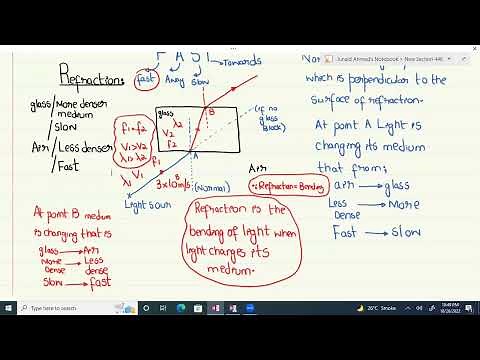 F A S T
Towards
fast Away slow
Refraction:
glass/More denser
medium
/slow
Air/Less denser
/Fast
f1=f2
V1>V2
λ1>λ2
glass
λ2
V2
f2
B
A
(if no
glass
block)
λ1 V1 f1
3x10^8 m/s
(Normal)
Light sour
Air
At point B medium
is changing that is
glass → Air
More → Less
Dense dense
slow → fast
Refraction is the
bending of light when
light changes its
medium.
Junaid Ahmad's Notebook > New Section 4
which is perpendicular to the
surface of refraction.
At point A Light is
changing its medium
that from;
∵Refraction=Bending
air → glass
Less → More
Dense
Fast → slow
Type here to search
26°C Smoke
10:49 PM
10/26/2022